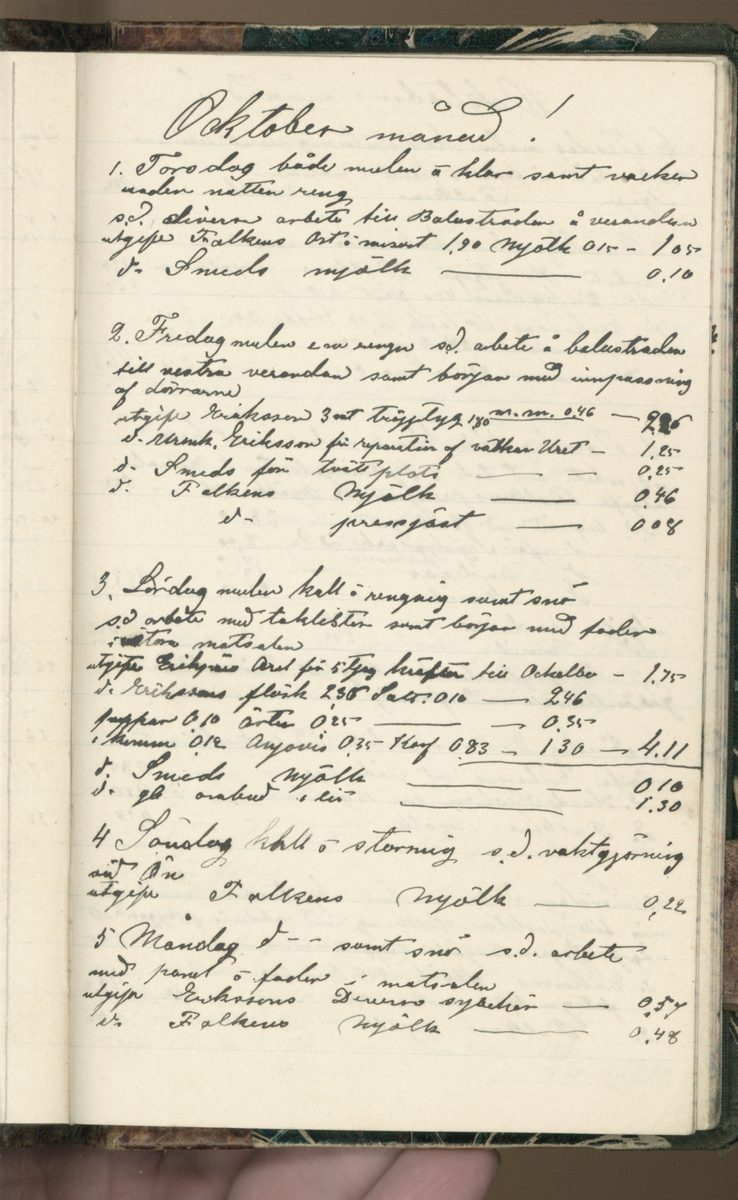 Oktober månad!
1. Torsdag både mulen å klar samt vacker
under natten reng
s.d. divers arbete till Balustraden å verandan
utgift Falkens Ost i missvt 1,90 Mjölk 0,15 - 1,05
d- Smeds mjölk — 0,10
2. Fredag mulen e.m. rengn s.d. arbete å balustraden
till vestra verandan samt början med innpassning
af dörrarne
utgift Eriksson 3 mt tröjtyg 1,80 m.m. 0,46 —
d- Urmk. Eriksson för reparation af väckar Uret — 1,25
d- Smeds för tvättplats — — 0,25
d- Falkens Mjölk — 0,46
d- pressgäst — 0,08
3. Lördag mulen kall å rengnig samt snö
s.d. arbete med taklister samt början med foder
i stora matsalen
utgift Axel för 5 tjog kräftor till Ockelbo - 1,75
d- Erikssons fläsk 2,36 Salt: 0,10 — 2,46
peppar 0,10 Ärter 0,25 — 0,35
kumm 0,12 Anjovis 0,35 Korf 0,83 - 1,30 — 4,11
d- Smeds Mjölk — 0,10
d- gl — 1,30
4 Söndag kall å stormig s.d. vaktgjörning
vid Ön
utgift Falkens Mjölk — 0,22
5 Måndag d-- samt snö s.d. arbete
med panel å foder i matsalen
utgift Erikssons Diverse sylscher — 0,57
d- Falkens Mjölk — 0,48